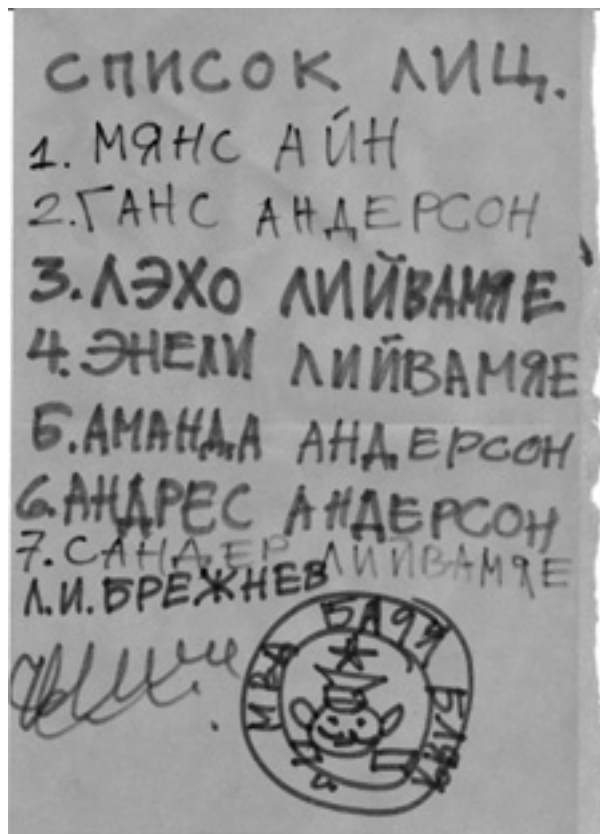 СПИСОК ЛИЦ.
1. МЯНС АЙН
2. ГАНС АНДЕРСОН
3. ЛЭХО ЛИЙВАМЯЕ
4. ЭНЕЛИ ЛИЙВАМЯЕ
5. АМАНДА АНДЕРСОН
6. АНДРЕС АНДЕРСОН
7. САНДЕР ЛИЙВАМЯЕ
Л.И. БРЕЖНЕВ